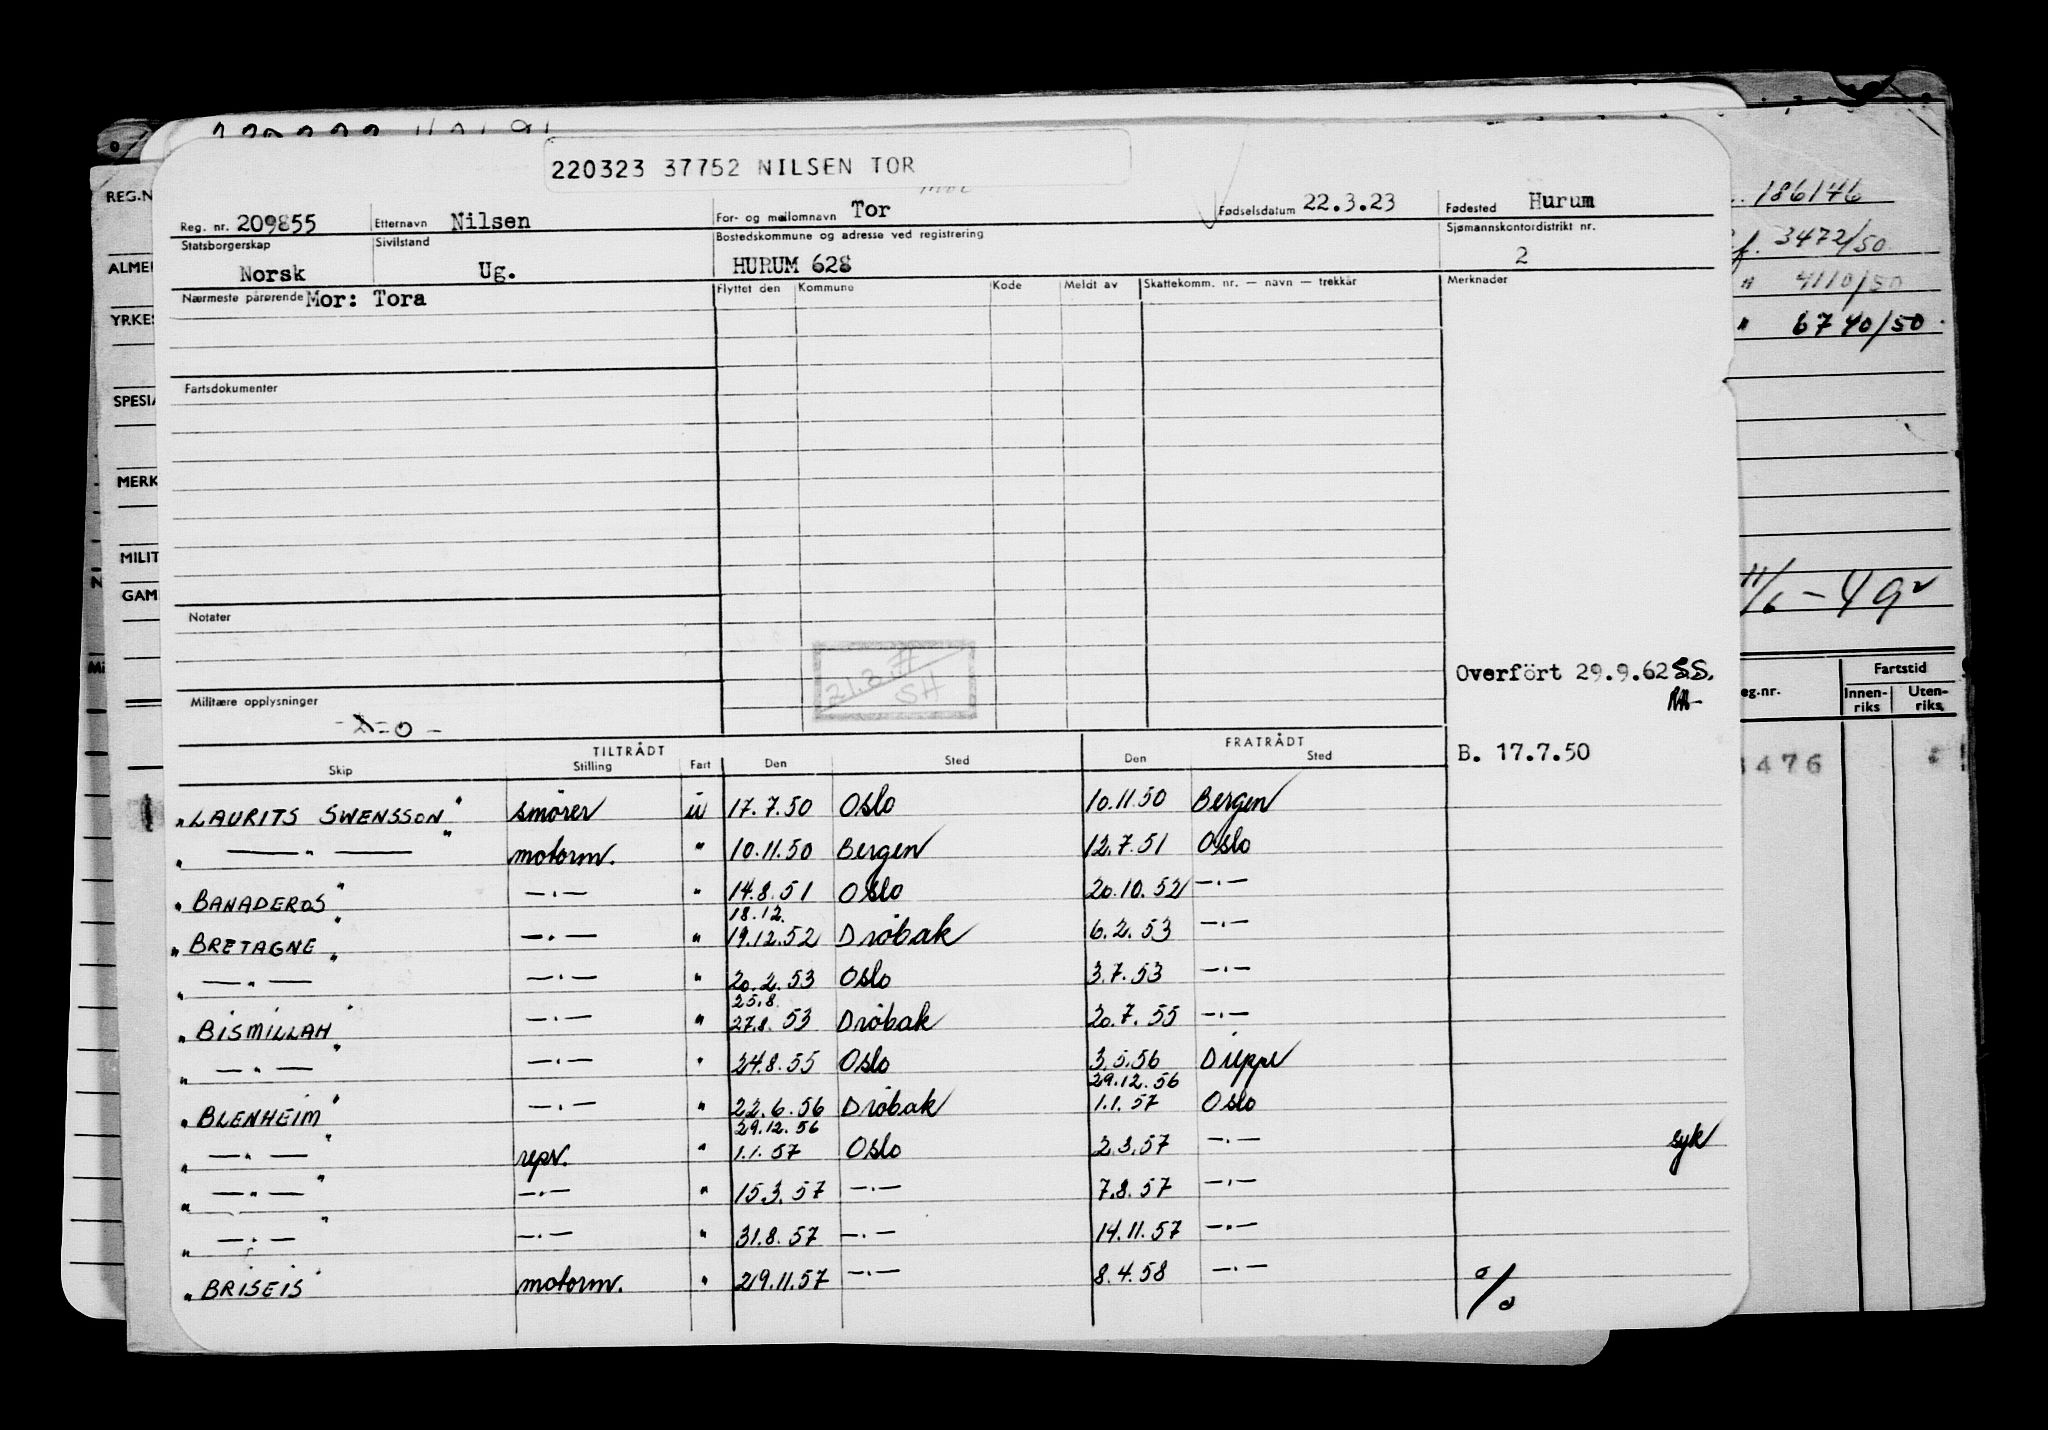 220323 37752 NILSEN TOR
Reg. nr. 209855 Etternavn Nilsen For- og mellomnavn Tor Fødselsdatum 22.3.23 Fødested Hurum
Statsborgerskap Sivilstand Bostedskommune og adresse ved registrering Sjømannskontordistrikt nr.
Norsk Ug. HURUM 628 2
Nærmeste pårørende Mor: Tora Flyttet den Kommune Kode Meldt av Skattekomm. nr. — navn — trekkår Merknader
Fartsdokumenter
Notater
21.2.77
SH
Overfört 29.9.62 SS.
Militære opplysninger
TILTRÅDT FRATRÅDT
Skip Stilling Fart Den Sted Den Sted B. 17.7.50
"LAURITS SWENSSON" smører u 17.7.50 Oslo 10.11.50 Bergen
" — " — " motorm. " 10.11.50 Bergen 12.7.51 Oslo
"BANADEROS" — " — " 14.8.51 Oslo 20.10.52 — " —
18.12.
"BRETAGNE" — " — " 19.12.52 Drøbak 6.2.53 — " —
" — " — — " — " 20.2.53 Oslo 3.7.53 — " —
25.8.
"BISMILLAH" — " — " 27.8.53 Drøbak 20.7.55 — " —
" — " — — " — " 24.8.55 Oslo 3.5.56 Dieppe
29.12.56
"BLENHEIM" — " — " 22.6.56 Drøbak 1.1.57 Oslo
29.12.56
" — " — repr. " 1.1.57 Oslo 2.3.57 — " — syk
" — " — " — " — " 15.3.57 — " — 7.8.57 — " —
" — " — " — " — " 31.8.57 — " — 14.11.57 — " —
"BRISEIS" motorm. " 29.11.57 — " — 8.4.58 — " — %
REG.N
ALME
YRKES
SPESIA
MERK
MILIT
GAM
186146
3472/50
" 4110/50
" 6740/50
11/6-49
eg.nr. Fartstid
Innen-riks Uten-riks
476